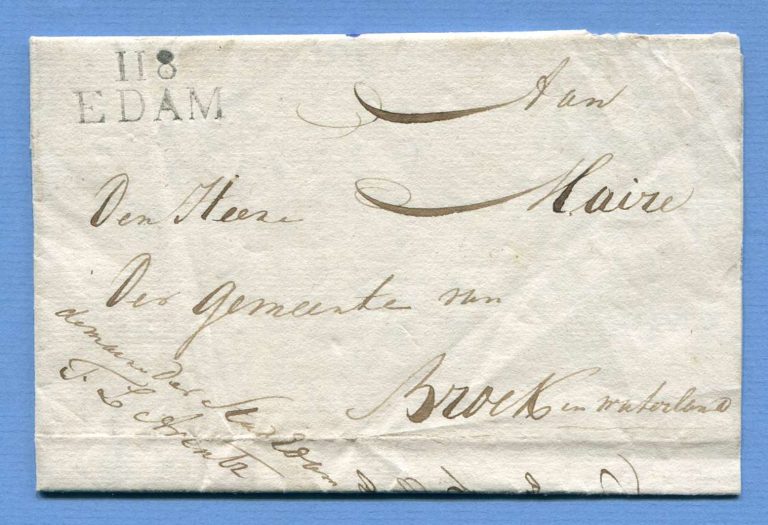 118
EDAM
Aan
Den Heere Maire
Der Gemeente van
Broek in waterland
de maire der Stad Edam